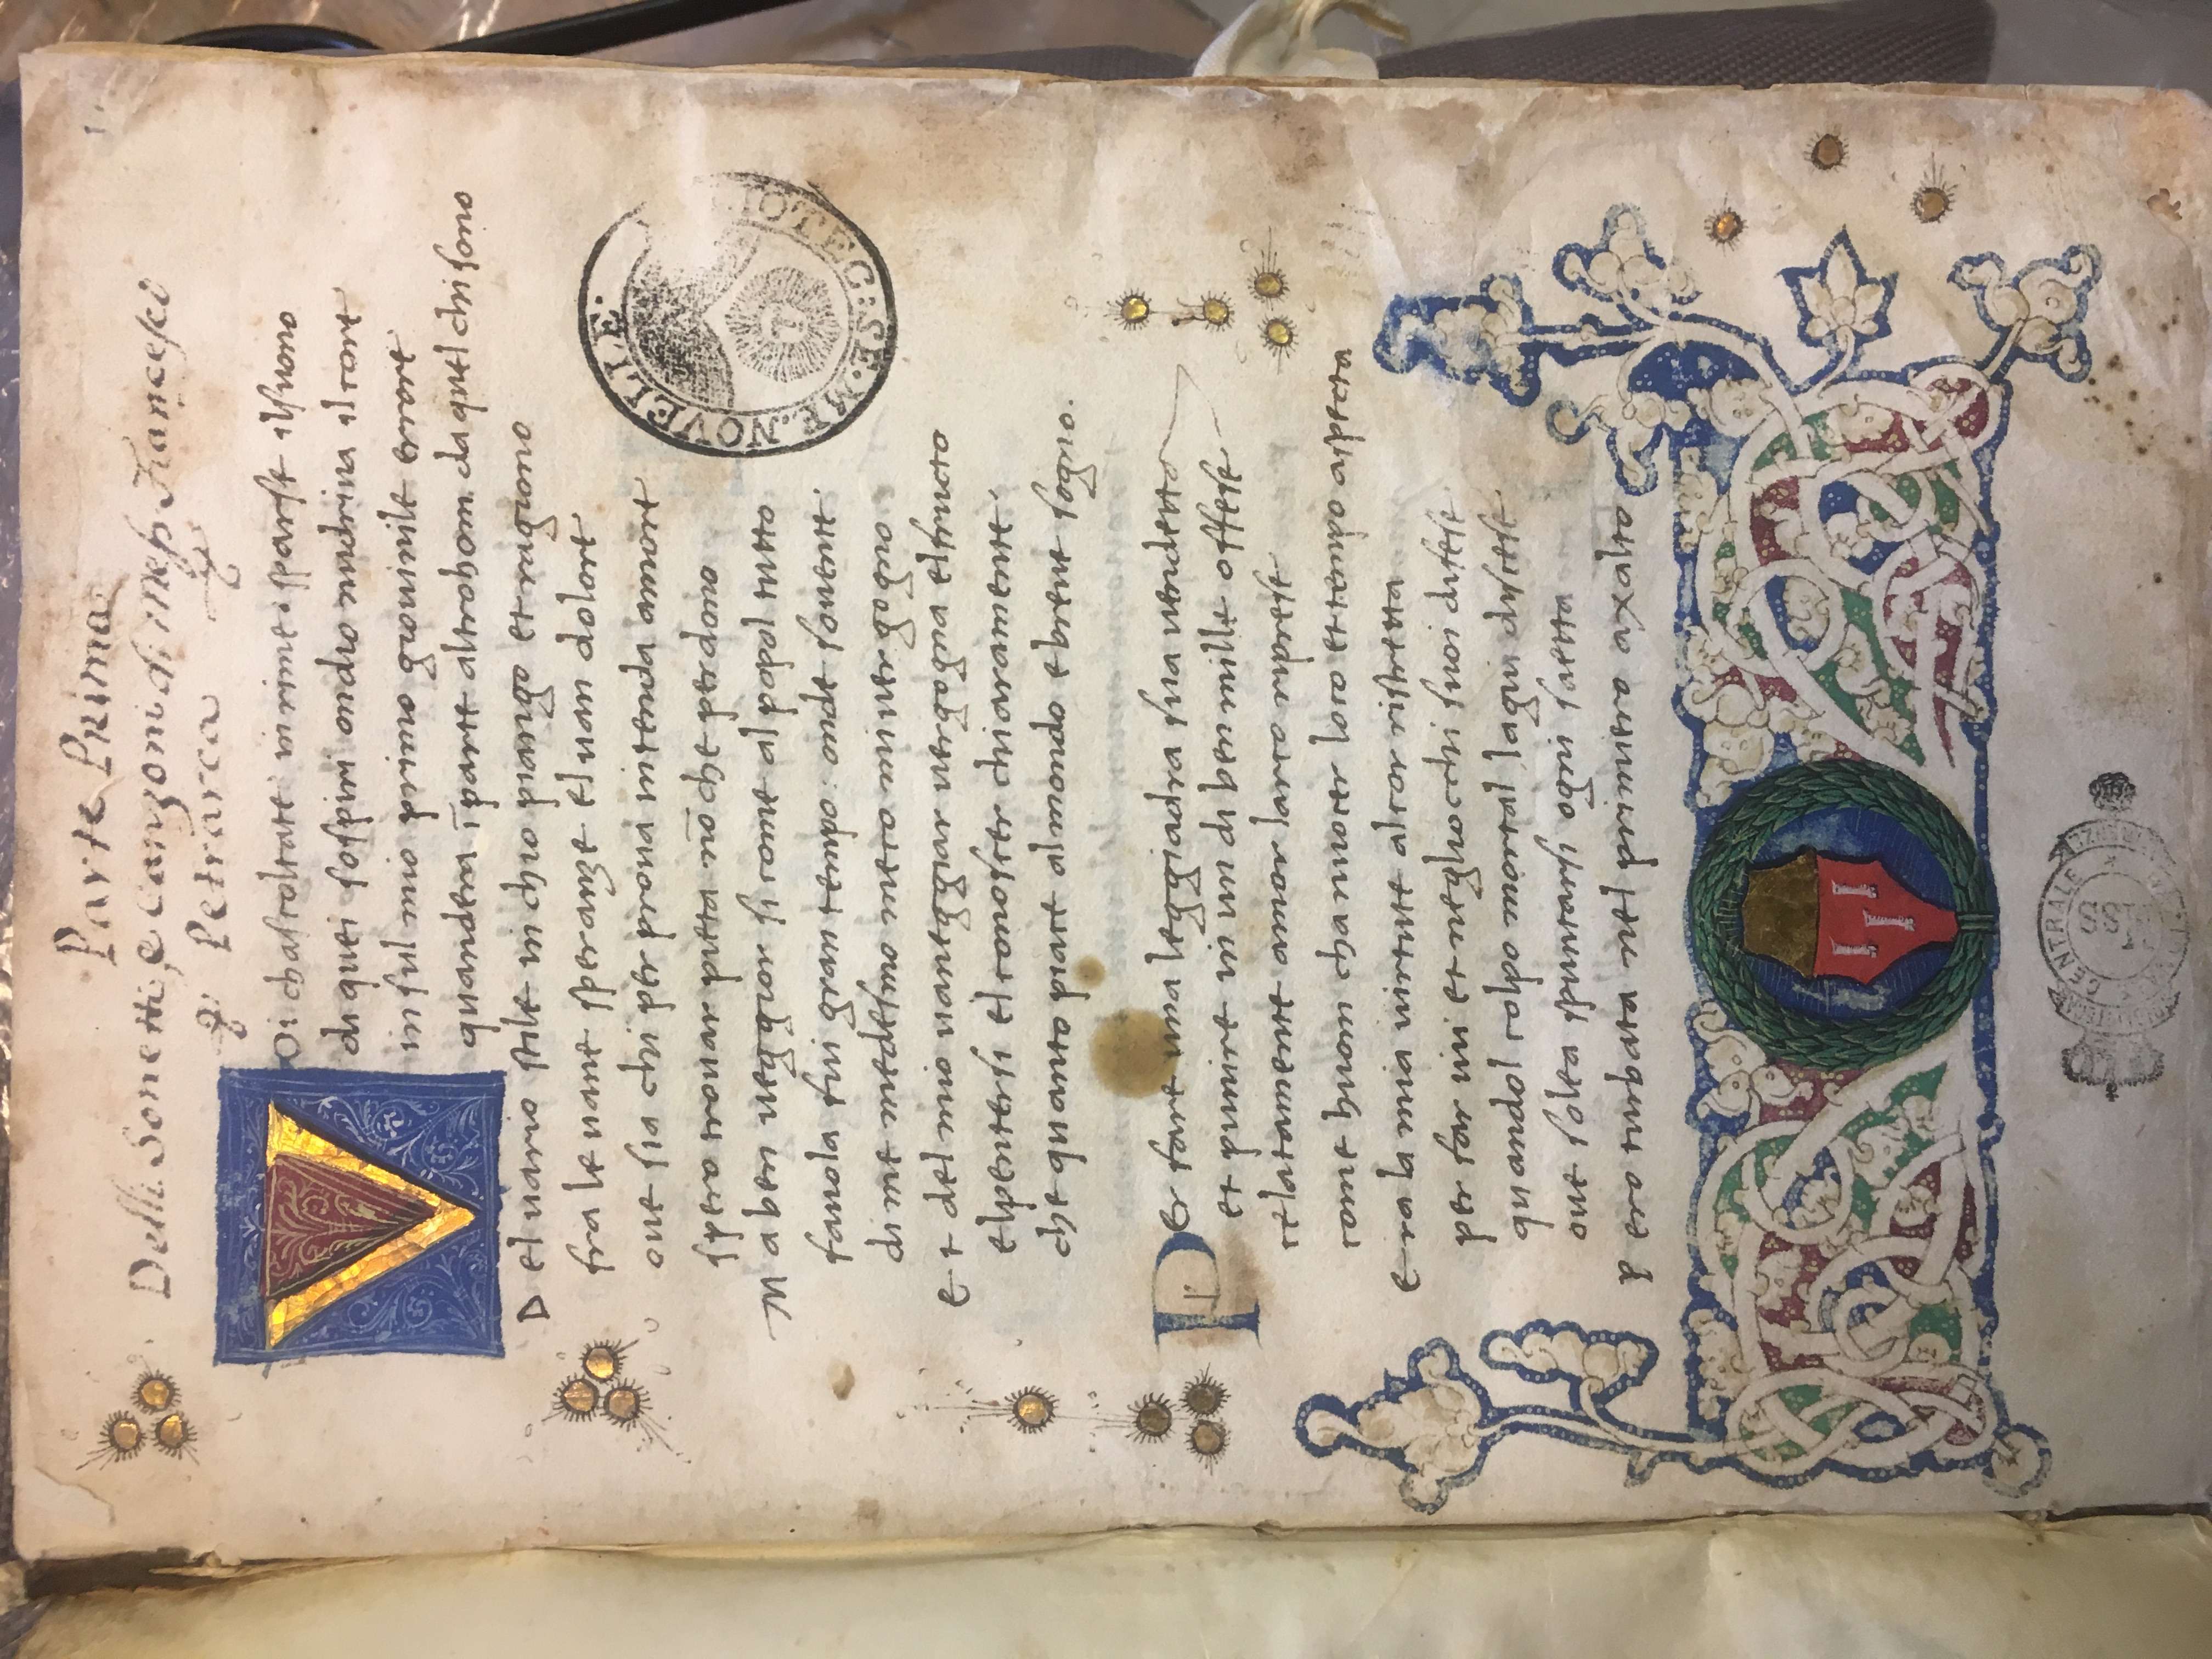 Parte Prima
Delli Sonetti, e Canzoni di mess Francesco
Petrarca
1.
VOi chascoltate in rime isparse ilsuono
di quei sospiri ondio nudriua il core
in sul mio primo giouinile errore
quandera ī parte altrohom da quel chi sono
D el uario stile in chio piango et ragiono
fra le uane speranze el uan dolore
oue sia chi per proua intenda amore
spero trouar pieta nō che perdono
M a ben ueggior si come al popol tutto
fauola fui gran tempo: onde souente.
di me medesmo meco miuergogno
e t del mio uaneggiar uergogna elfructo
elpentersi elconoscer chiaramente.
che quanto piace almondo e breue sogno.
PEr fare una leggiadra sua uendetta
et punire in un di ben mille offese
celatamente amor larco riprese
come huom cha nuocer loco et tempo aspetta
e ra la mia uirtute al cor ristretta
per far iui et negliocchi suoi difese
quandol colpo mortal lagiu discese
oue solea spuntarsi ogni saetta
p ero turbata nel primiero axalto
BIOTEC: S. E. ME. NOVELLE.
CENTRALE